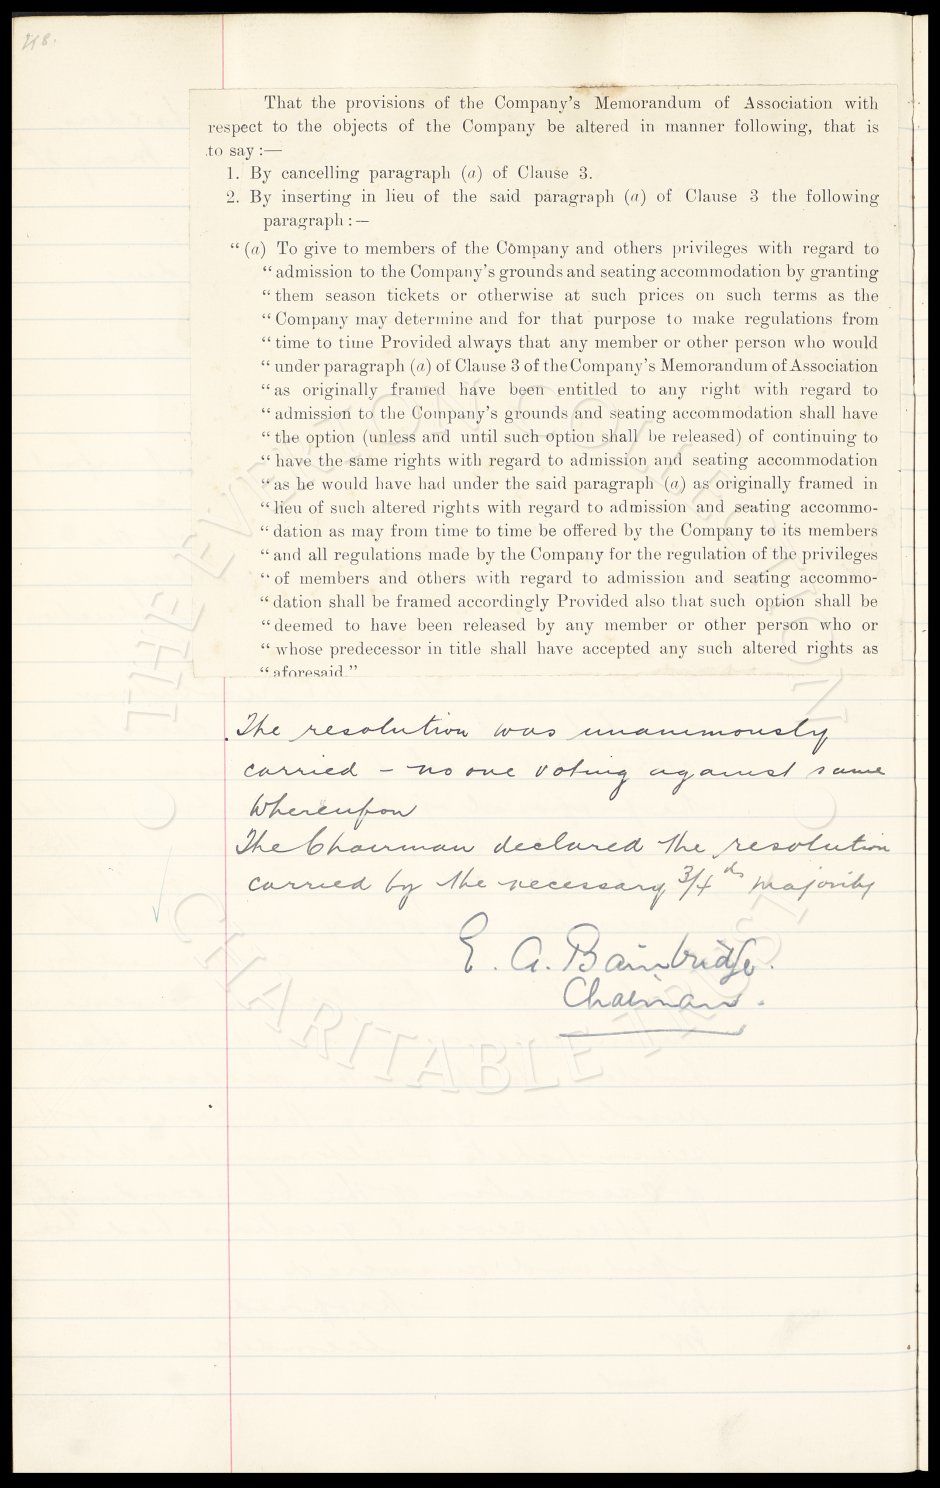 218.
That the provisions of the Company's Memorandum of Association with
respect to the objects of the Company be altered in manner following, that is
to say :—
1. By cancelling paragraph (a) of Clause 3.
2. By inserting in lieu of the said paragraph (a) of Clause 3 the following
paragraph :—
"(a) To give to members of the Company and others privileges with regard to
"admission to the Company's grounds and seating accommodation by granting
"them season tickets or otherwise at such prices on such terms as the
"Company may determine and for that purpose to make regulations from
"time to time Provided always that any member or other person who would
"under paragraph (a) of Clause 3 of the Company's Memorandum of Association
"as originally framed have been entitled to any right with regard to
"admission to the Company's grounds and seating accommodation shall have
"the option (unless and until such option shall be released) of continuing to
"have the same rights with regard to admission and seating accommodation
"as he would have had under the said paragraph (a) as originally framed in
"lieu of such altered rights with regard to admission and seating accommo-
"dation as may from time to time be offered by the Company to its members
"and all regulations made by the Company for the regulation of the privileges
"of members and others with regard to admission and seating accommo-
"dation shall be framed accordingly Provided also that such option shall be
"deemed to have been released by any member or other person who or
"whose predecessor in title shall have accepted any such altered rights as
"aforesaid."
The resolution was unanimously
carried – no one voting against same
Whereupon
The Chairman declared the resolution
carried by the necessary 3/4ds majority
E. A. Bainbridge.
Chairman.
THE EVERTON COLLECTION
CHARITABLE TRUST